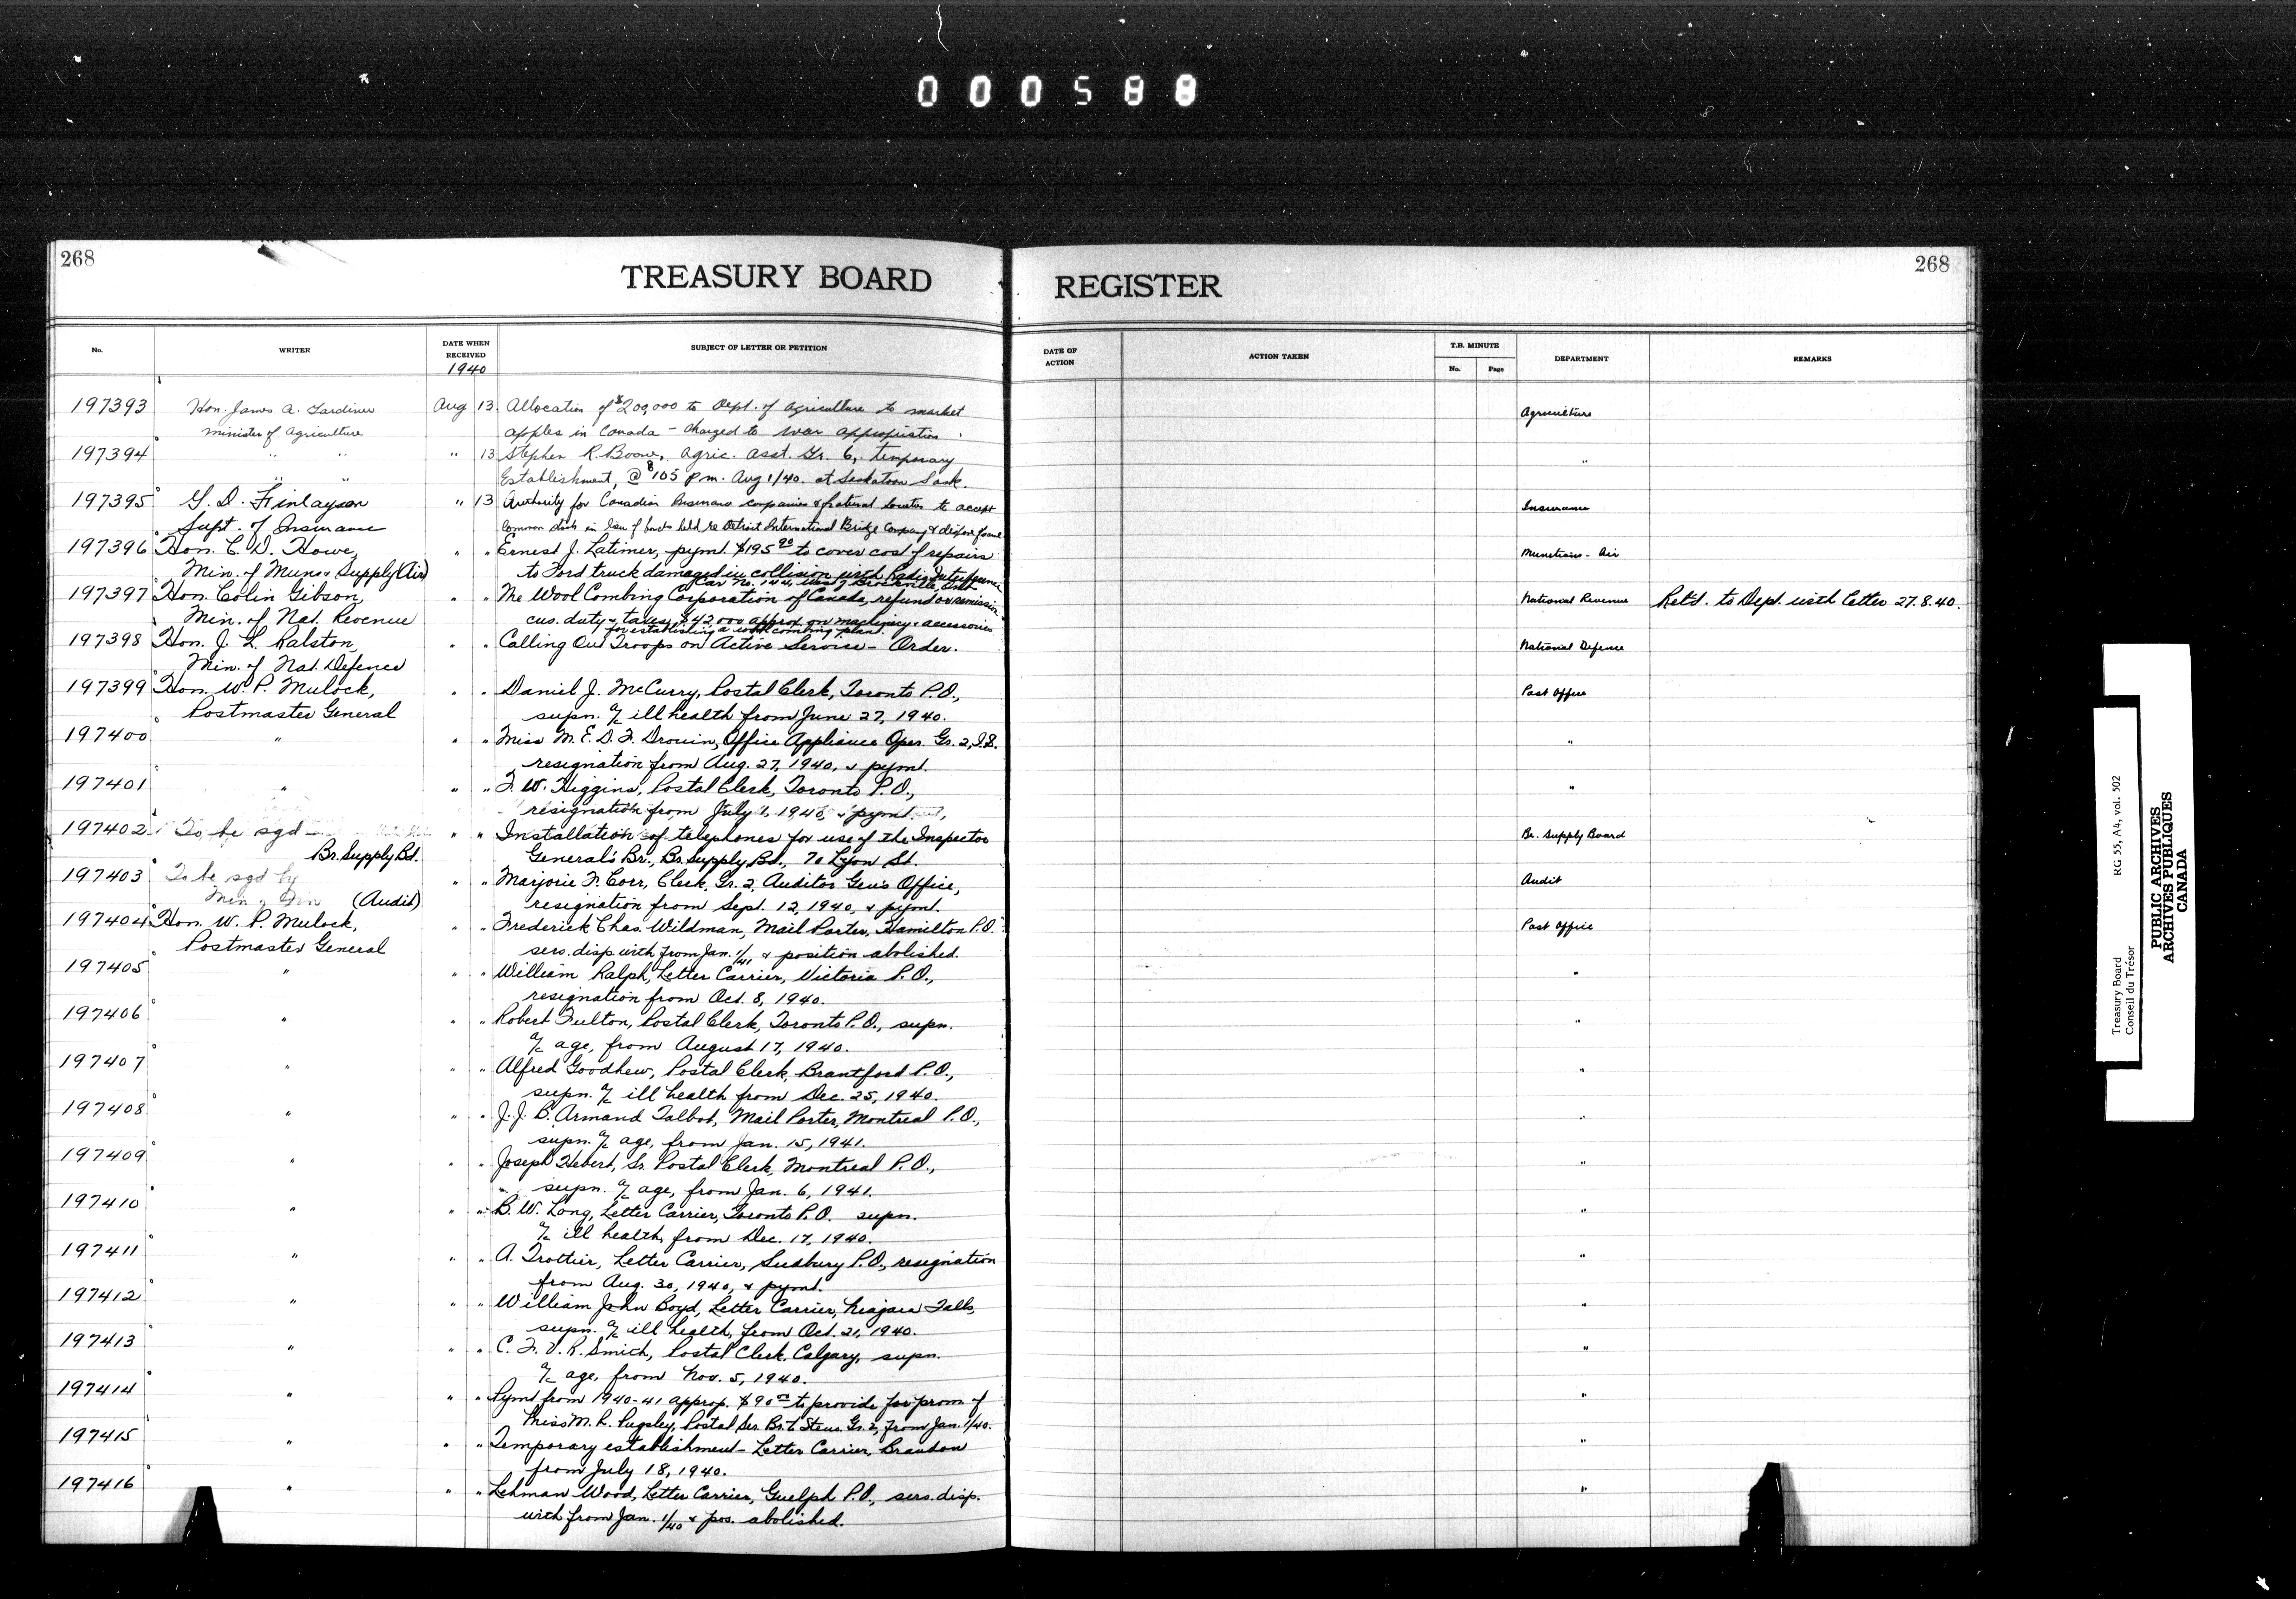 000588
268
TREASURY BOARD REGISTER
268
No. WRITER DATE WHEN RECEIVED SUBJECT OF LETTER OR PETITION DATE OF ACTION ACTION TAKEN T.B. MINUTE No. Page DEPARTMENT REMARKS
1940
197393 Hon. James A. Gardiner Aug 13. Allocation of $200,000 to Dept. of Agriculture to market Agriculture
Minister of Agriculture apples in Canada - charged to war appropriation.
197394 " " " 13 Stephen R. Boone, Agric. Asst. Gr. 6, temporary "
" " Establishment, @ $105 p.m. Aug 1/40. at Saskatoon Sask.
197395 G. D. Finlayson " 13 Authority for Canadian Insurance companies & fraternal societies to accept Insurance
Supt. of Insurance Common stocks in lieu of bonds held re Detroit International Bridge Company & dispose of same
197396 Hon. C. D. Howe, " " Ernest J. Latimer, pymt. $195.90 to cover cost of repairs Munitions - Air
Min. of Muns & Supply (Air) to Ford truck damaged in collision with Radio Interference
Car No. 144, west of Brockville, Ont.
197397 Hon. Colin Gibson, " " The Wool Combing Corporation of Canada, refund or remission National Revenue Ret'd. to Dept. with letter 27.8.40.
Min. of Nat. Revenue cus. duty & taxes, $42,000 approx. on machinery & accessories
for establishing a wool combing plant.
197398 Hon. J. L. Ralston, " " Calling Out Troops on Active Service - Order. National Defence
Min. of Nat. Defence
197399 Hon. W. P. Mulock, " " Daniel J. McCurry, Postal Clerk, Toronto P.O., Post Office
Postmaster General supn. a/c ill health from June 27, 1940.
197400 " " " Miss M. E. D. F. Drouin, Office Appliance Oper. Gr. 2, I.S. "
resignation from Aug. 27, 1940, & pymt.
197401 " " " F. W. Higgins, Postal Clerk, Toronto P.O., "
resignation from July 1, 1940, & pymt.
197402 To be sgd " " Installation of telephones for use of the Inspector Br. Supply Board
Br. Supply Bd. General's Br., Br. Supply Bd., 70 Lyon St.
197403 To be sgd by " " Marjorie F. Corr, Clerk, Gr. 2, Auditor Gen's Office, Audit
Min. of Fin (Audit) resignation from Sept. 12, 1940, & pymt.
197404 Hon. W. P. Mulock, " " Frederick Chas. Wildman, Mail Porter, Hamilton P.O. Post Office
Postmaster General sers. disp. with from Jan. 1/41 & position abolished.
197405 " " " William Ralph, Letter Carrier, Victoria P.O., "
resignation from Oct. 8, 1940.
197406 " " " Robert Fulton, Postal Clerk, Toronto P.O., supn. "
a/c age, from August 17, 1940.
197407 " " " Alfred Goodhew, Postal Clerk, Brantford P.O., "
supn. a/c ill health from Dec. 25, 1940.
197408 " " " J. J. B. Armand Talbot, Mail Porter, Montreal P.O., "
supn. a/c age, from Jan. 15, 1941.
197409 " " " Joseph Hebert, Sr. Postal Clerk, Montreal P.O., "
supn. a/c age, from Jan. 6, 1941.
197410 " " " B. W. Long, Letter Carrier, Toronto P.O. supn. "
a/c ill health, from Dec. 17, 1940.
197411 " " " A. Trottier, Letter Carrier, Sudbury P.O., resignation "
from Aug. 30, 1940, & pymt.
197412 " " " William John Boyd, Letter Carrier, Niagara Falls, "
supn. a/c ill health, from Oct. 21, 1940.
197413 " " " C. F. V. R. Smich, Postal Clerk, Calgary, supn. "
a/c age, from Nov. 5, 1940.
197414 " " " Pymt from 1940-41 approp. $90.00 to provide for prom. of "
Miss M. R. Pugsley, Postal Ser. Br. to Steno. Gr. 2, from Jan. 1/40.
197415 " " " Temporary establishment - Letter Carrier, Brandon "
from July 18, 1940.
197416 " " " Lehman Wood, Letter Carrier, Guelph P.O., sers. disp. "
with from Jan. 1/40 & pos. abolished.
Treasury Board RG 55, A4, vol. 502
Conseil du Trésor
PUBLIC ARCHIVES
ARCHIVES PUBLIQUES
CANADA